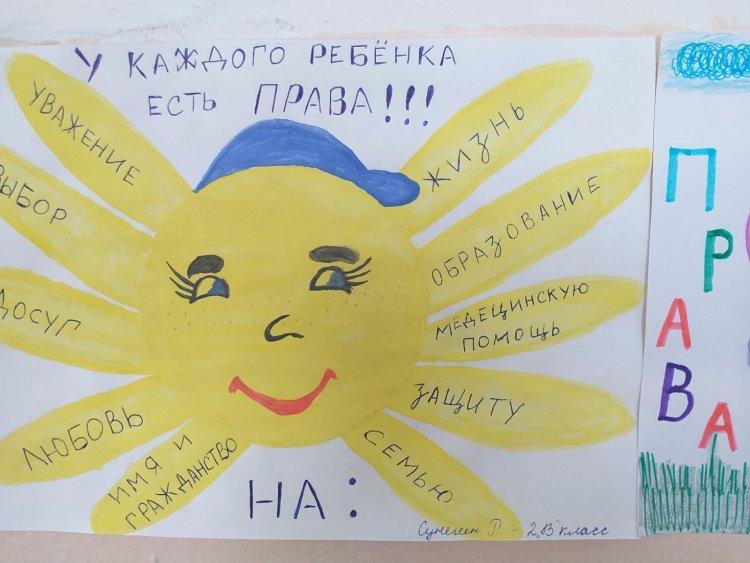 У КАЖДОГО РЕБЁНКА
ЕСТЬ ПРАВА!!!
УВАЖЕНИЕ
ВЫБОР
ДОСУГ
ЛЮБОВЬ
ИМЯ И
ГРАЖДАНСТВО
ЖИЗНЬ
ОБРАЗОВАНИЕ
МЕДЕЩИНСКУЮ
ПОМОЩЬ
ЗАЩИТУ
СЕМЬЮ
НА:
Р - 2 "В" класс
ПРАВА